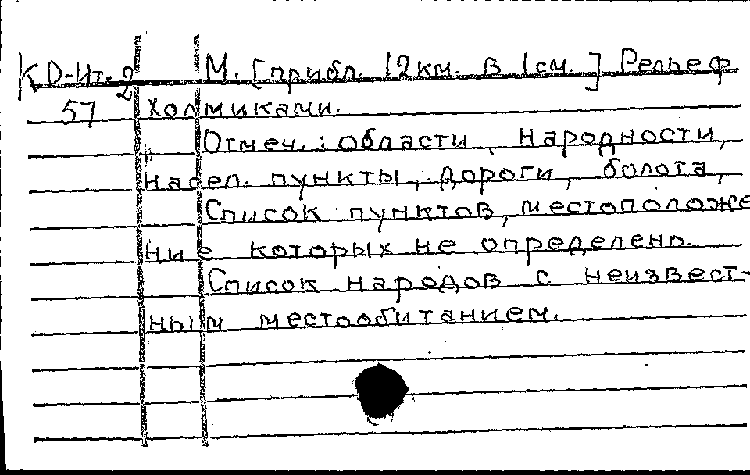 КО-Ит.2 М. [прибл. 12км. в 1см.] Рельеф
57 холмиками.
Отмеч.: области, народности,
насел. пункты, дороги, болота,
Список пунктов, местоположе
ние которых не определено.
Список народов с неизвест-
ным местообитанием.